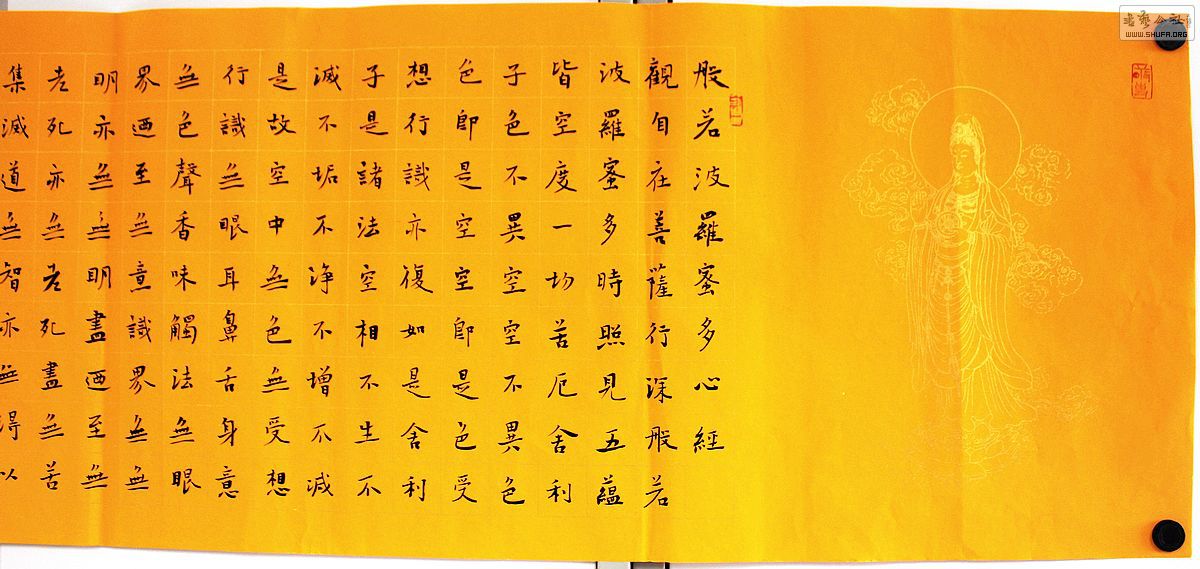 般若波羅蜜多心經
觀自在菩薩行深般若
波羅蜜多時照見五蘊
皆空度一切苦厄舍利
子色不異空空不異色
色即是空空即是色受
想行識亦復如是舍利
子是諸法空相不生不
滅不垢不净不增不減
是故空中無色無受想
行識無眼耳鼻舌身意
無色聲香味觸法無眼
界迺至無意識界無無
明亦無無明盡迺至無
老死亦無老死盡無苦
集滅道無智亦無得以
書藝公社
WWW.SHUFA.ORG